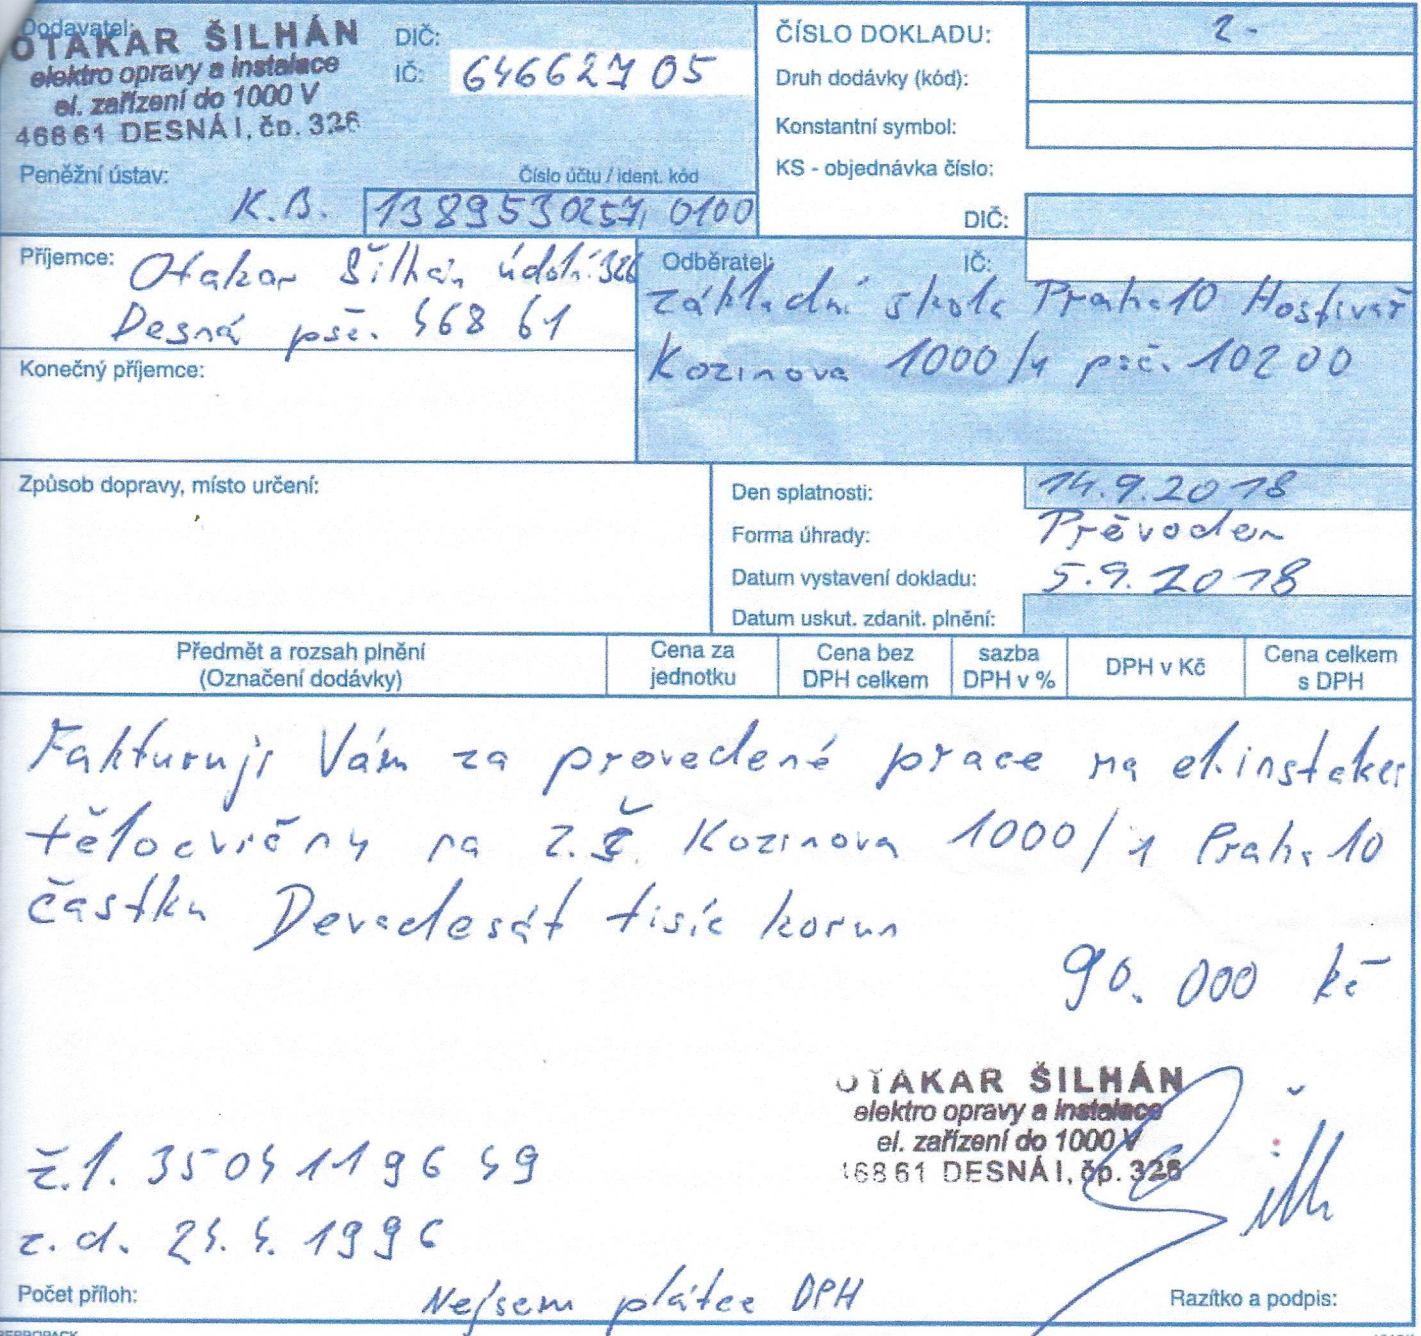 Dodavatel:
OTAKAR ŠILHÁN
elektro opravy a instalace
el. zařízení do 1000 V
468 61 DESNÁ I, čp. 326
DIČ:
IČ: 64662705
Peněžní ústav:
Číslo účtu / ident. kód
K.B. 1389530257, 0100
ČÍSLO DOKLADU: 2-
Druh dodávky (kód):
Konstantní symbol:
KS - objednávka číslo:
DIČ:
Příjemce: Otakar Šilhán údolní 326
Desná psč. 468 61
Konečný příjemce:
Odběratel: IČ:
Základní škola Praha 10 Hostivař
Kozinova 1000/1 psč. 10200
Způsob dopravy, místo určení:
Den splatnosti: 14.9.2018
Forma úhrady: Prěvoden
Datum vystavení dokladu: 5.9.2018
Datum uskut. zdanit. plnění:
Předmět a rozsah plnění
(Označení dodávky)
Cena za
jednotku
Cena bez
DPH celkem
sazba
DPH v %
DPH v Kč
Cena celkem
s DPH
Fakturuji Vám za provedené prace na el.
tělocvičny na Z.Š. Kozinova 1000/1 Praha 10
častku Devadesát tisíc korun
90.000 kč
OTAKAR ŠILHÁN
elektro opravy a instalace
el. zařízení do 1000 V
468 61 DESNÁ I, čp. 326
ž.l. 3504119649
z.d. 24.4.1996
Počet příloh:
Nejsem plátce DPH
Razítko a podpis: